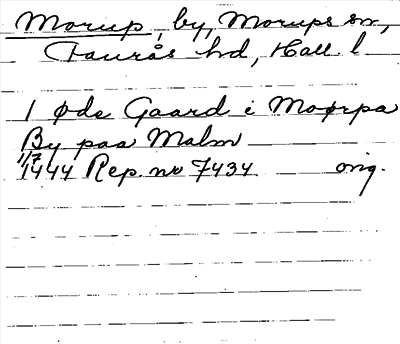 Morup, by, Morups sn,
Faurås hd, Hall l
1 øde Gaard i Moørpa
By paa Malm
1/7
1444 Rep. no 7434 orig.